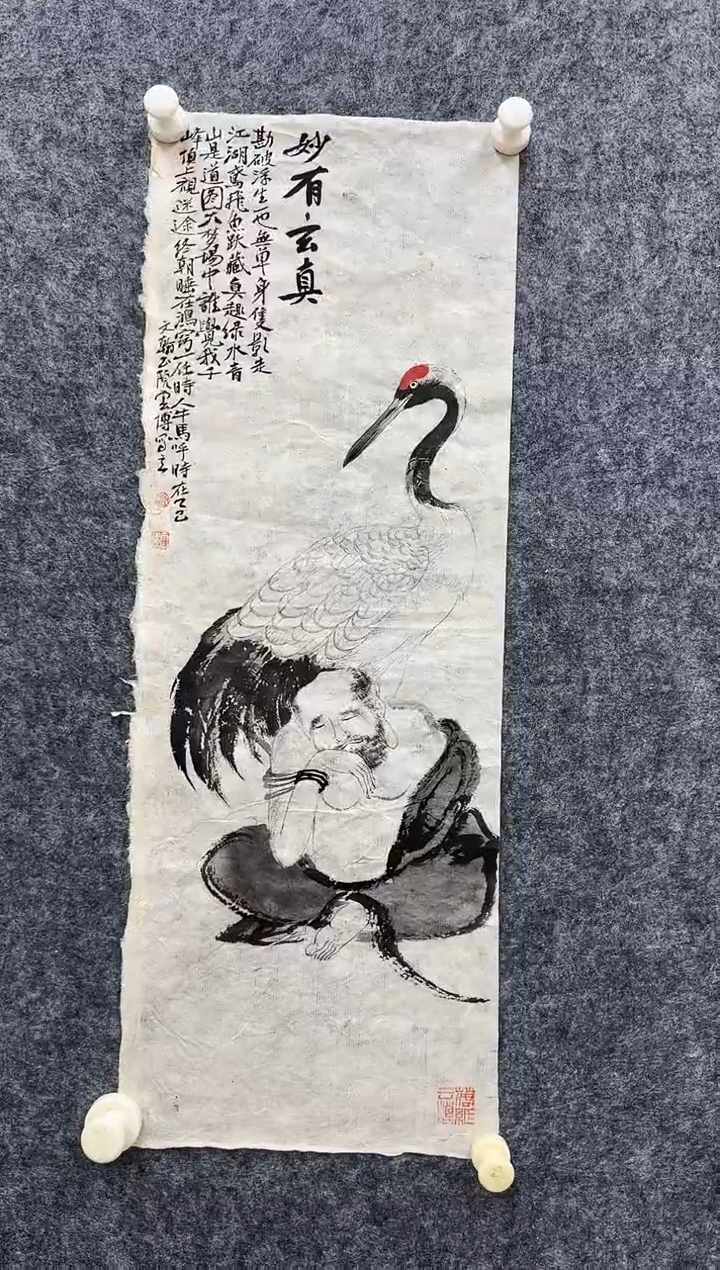 妙有玄真
勘破浮生一也無單身隻影走
江湖鳶飛魚躍藏真趣绿水青
山是道圖大梦場中誰覺我千
峰頂上視迷途终朝睡在鴻窍一任時人牛馬呼時在乙巳
文翰玉隂雲博寫立